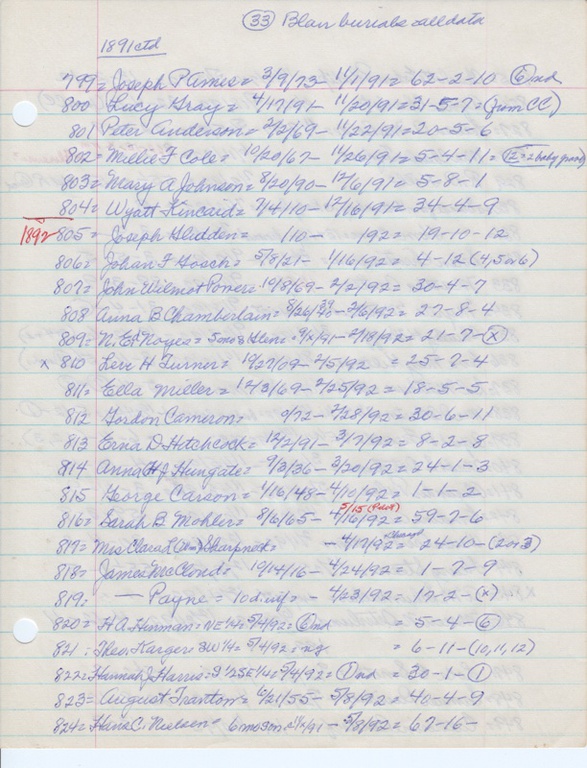 (33) Blair burials all data
1891 ctd
799 = Joseph P Ames = 3/9/73 - 11/1/91 = 62-2-10 (6) nd
800 Lucy Gray = 4/17/91 - 11/20/91 = 31-5-7 = (from CC)
801 Peter Anderson = 2/2/69 - 11/22/91 = 20-5-6
802 = Millie F Cole = 10/20/67 - 11/26/91 = 5-4-11 = (12 = 2 baby graves)
803 = Mary A Johnson = 8/20/90 - 12/6/91 = 5-8-1
804 = Wyatt Kincaid = 7/4/10 - 12/16/91 = 34-4-9
1892 805 = Joseph Glidden = /10 - /92 = 19-10-12
806 = Johan F Gosch = 5/8/21 - 1/16/92 = 4-12 (4,5 or 6)
807 = John Wilmot Power = 10/8/69 - 2/2/92 = 30-4-7
808 Anna B Chamberlain = 8/26/ - 2/6/92 = 27-8-4
809 = N. E. Noyes = 2/18/92 = 21-7-(X)
x 810 Levi H Turner = 10/27/09 - 2/5/92 = 25-7-4
811 = Ella Miller = 12/3/69 - 2/25/92 = 18-5-5
812 Gordon Cameron = 9/72 - 2/28/92 = 30-6-11
813 Erna D Hitchcock = 12/2/91 - 3/7/92 = 8-2-8
814 Anna H J Hungate = 9/3/36 - 3/20/92 = 24-1-3
815 George Carson = 1/16/48 - 4/10/92 = 1-1-2
5/15 (Pilot)
816 = Sarah B Mohler = 8/6/65 - 4/16/92 = 59-7-6
817 = Mrs Clara L (Wm) Sharpnack = - 4/17/92 = 24-10-(2 or 3)
818 = James McCloud = 10/14/16 - 4/24/92 = 1-7-9
819 = — Payne = 10 d. inf = - 4/23/92 = 17-2-(X)
820 = H. A. Hinman = NE 1/4 = 5/4/92 = (2) nd = 5-4-(6)
821 = Theo. Karger = SW 1/4 = 5/4/92 = ng = 6-11-(10,11,12)
822 = Hannah J Harris = S 1/2 SE 1/4 = 5/4/92 = (1) nd = 30-1-(1)
823 = August Tranton = 6/21/55 - 5/8/92 = 40-4-9
824 = Hans C. Nielsen = 6 mo son - 5/8/92 = 67-16-